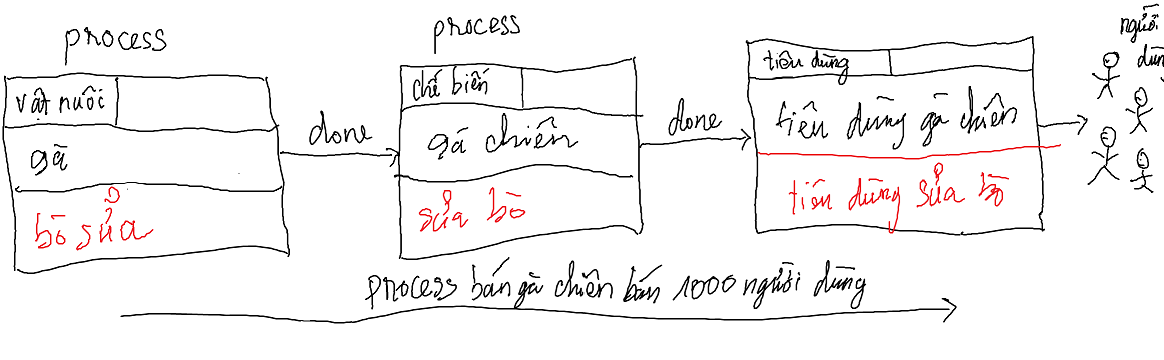 process
vật nuôi
gà
bò sữa
done
process
chế biến
gà chiên
sữa bò
done
tiêu dùng
tiêu dùng gà chiên
tiêu dùng sữa bò
người
dùng
process bán gà chiên bán 1000 người dùng